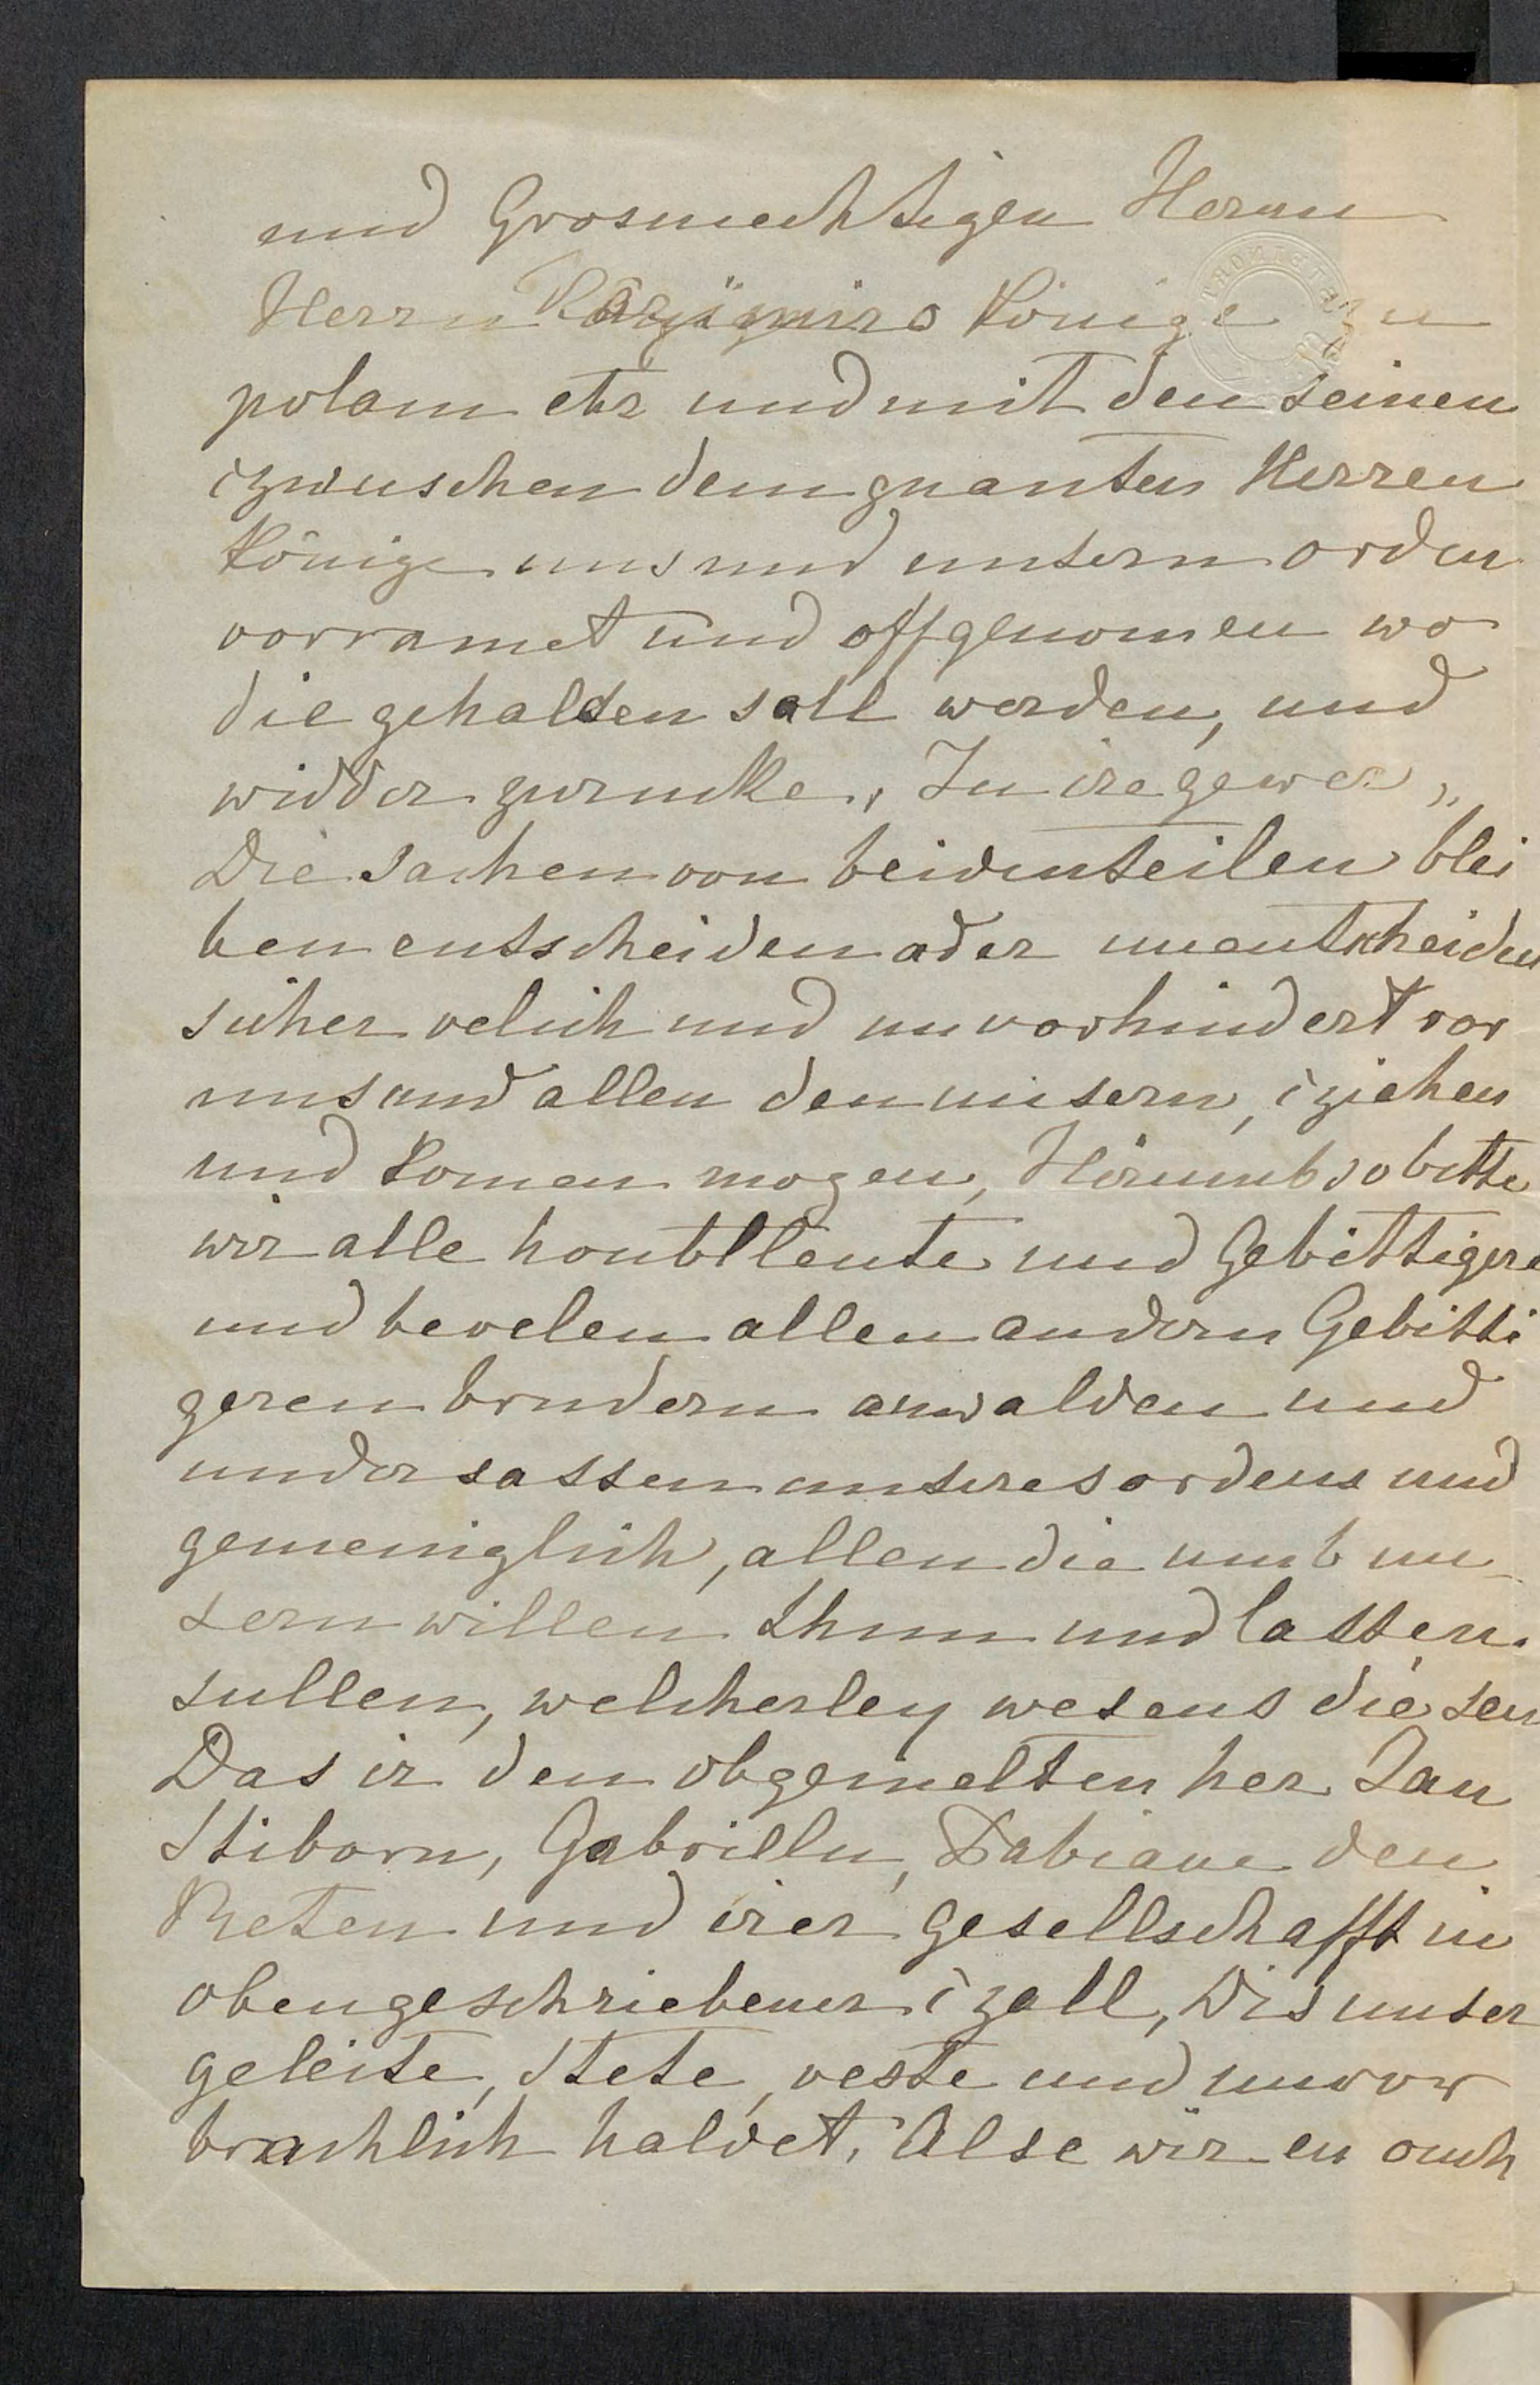 und Grosmechtigen Herrnn
Herrn Kazÿmiro Könige zu
polann etz und mit den seinen
czwuschen dem gnanten Herren
Könige uns und unsern orden
vorramet und offgenomen wo
die gehalden soll werden, und
widder zurucke, In ire gewer,
Die sachen von beidenteilen blei
ben entscheiden ader unentscheiden
sicher velich und unvorhindert vor
uns und allen den unsern, cziehen
und komen mogen, Hirumb so bitte
wir alle houbtleute und Gebittigere
und bevelen allen andern Gebitti
geren brudern anwalden und
undersassen unseres ordens und
gemeiniglich, allen die umb un
sern willen thun und lassen
sullen, welcherley wesens die sein
Das ir den obgemelten her Jan
Stiborn, Gabrilln, Fabiane den
Reten und irer gesellschafft in
obengeschriebener czall, Dis unser
geleite, stete, veste und unvor
brachlich haldet, Alse wir en ouch